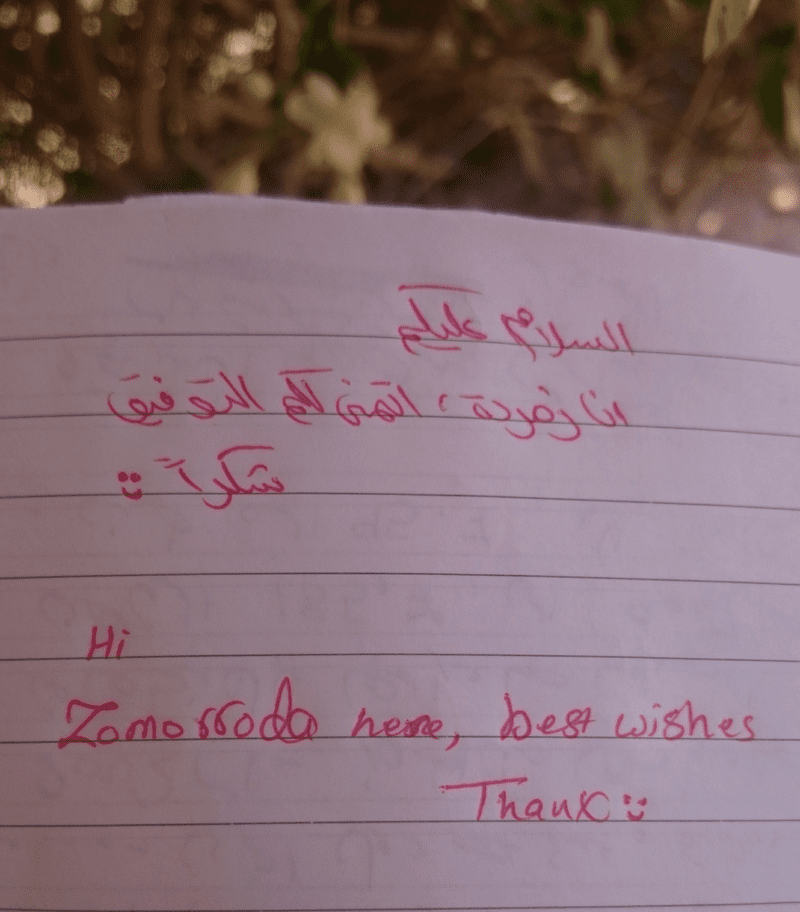 السلام عليكم
انا زمردة، اتمنى لكم التوفيق
شكراً :)
Hi
Zomorroda here, best wishes
Thank :)